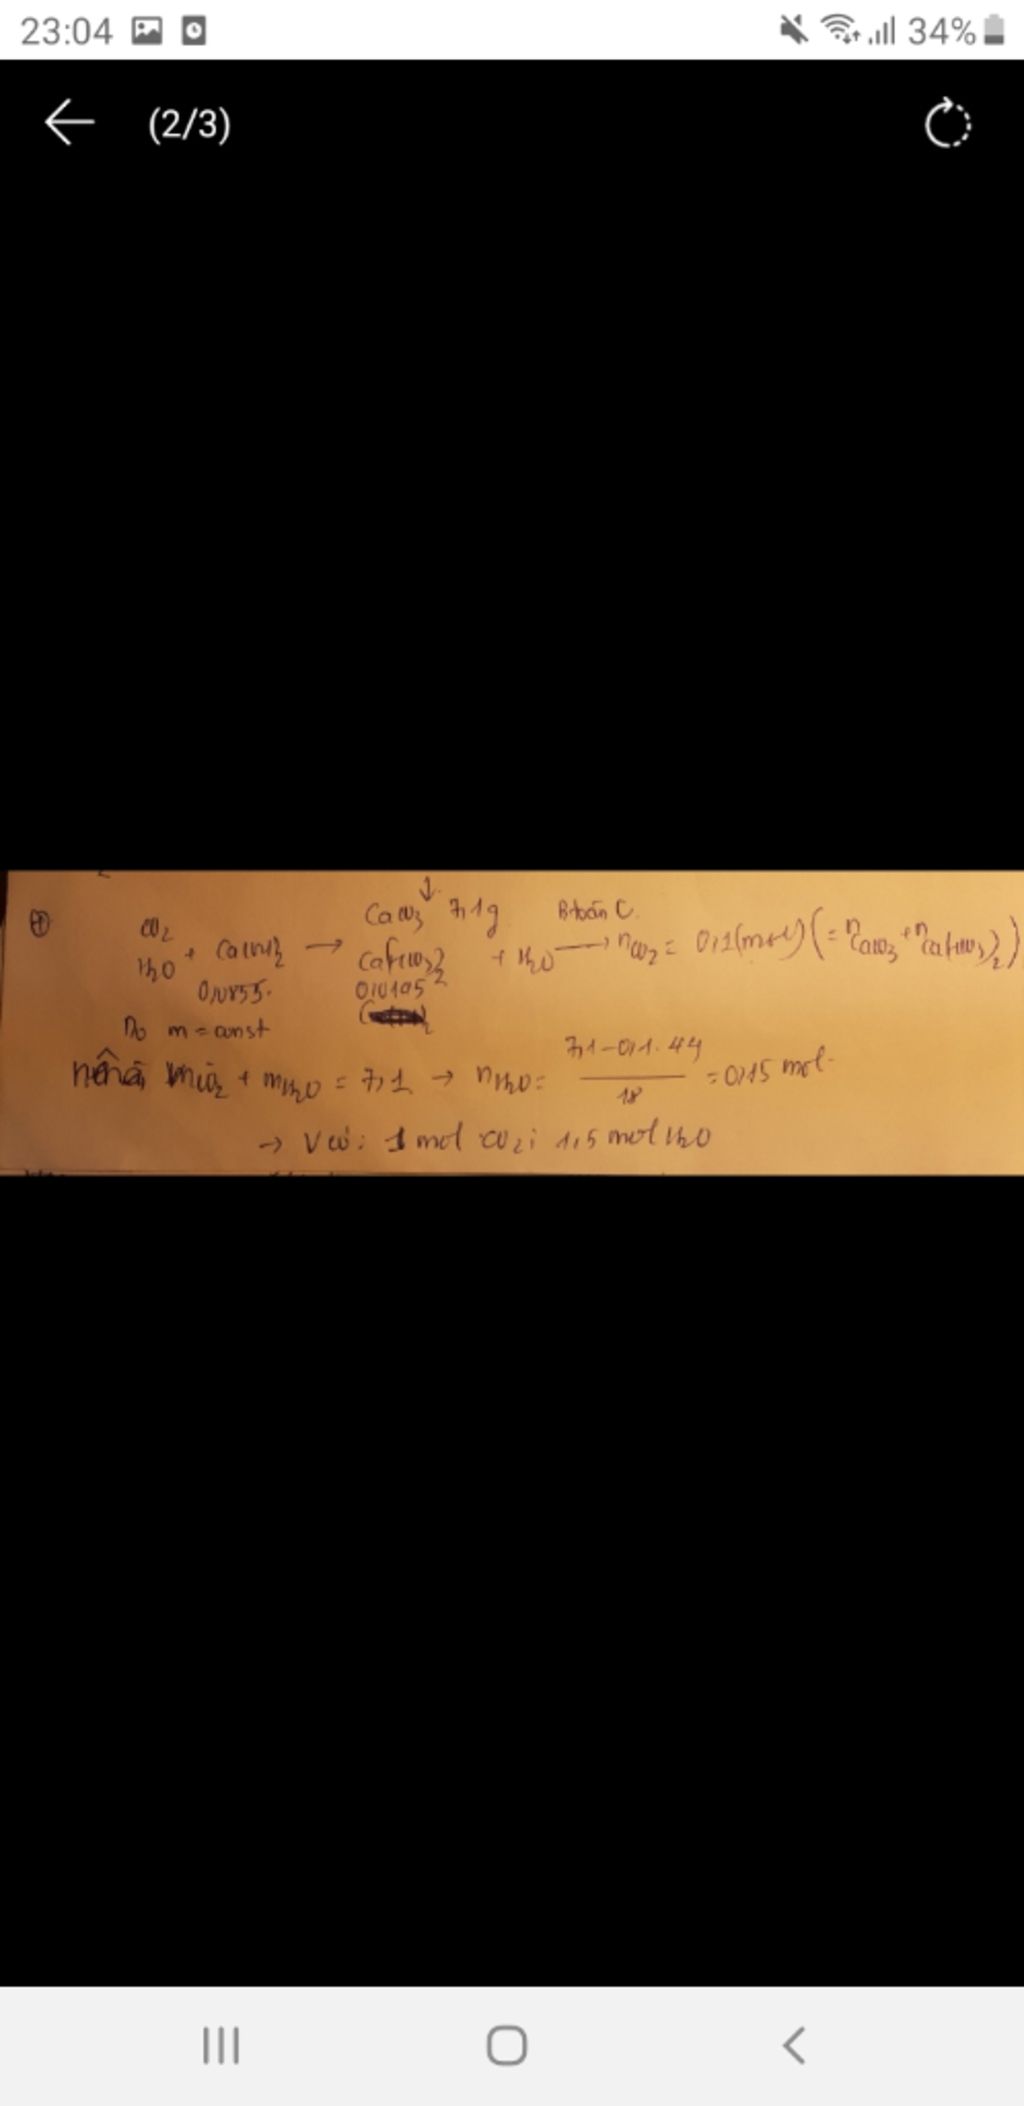 23:04 34%
(2/3)
↓
CaCO3 7,1g B.toàn C.
CO2
H2O + Ca(OH)2 → Ca(HCO3)2 + H2O → nCO2 = 0,1(mol) (= nCaCO3 + nCa(HCO3)2)
0,0855. 0,0145
Do m = const
nên mCO2 + mH2O = 7,1 → nH2O = 7,1-0,1.44 / 18 = 0,15 mol
→ V có: 1 mol CO2; 1,5 mol H2O